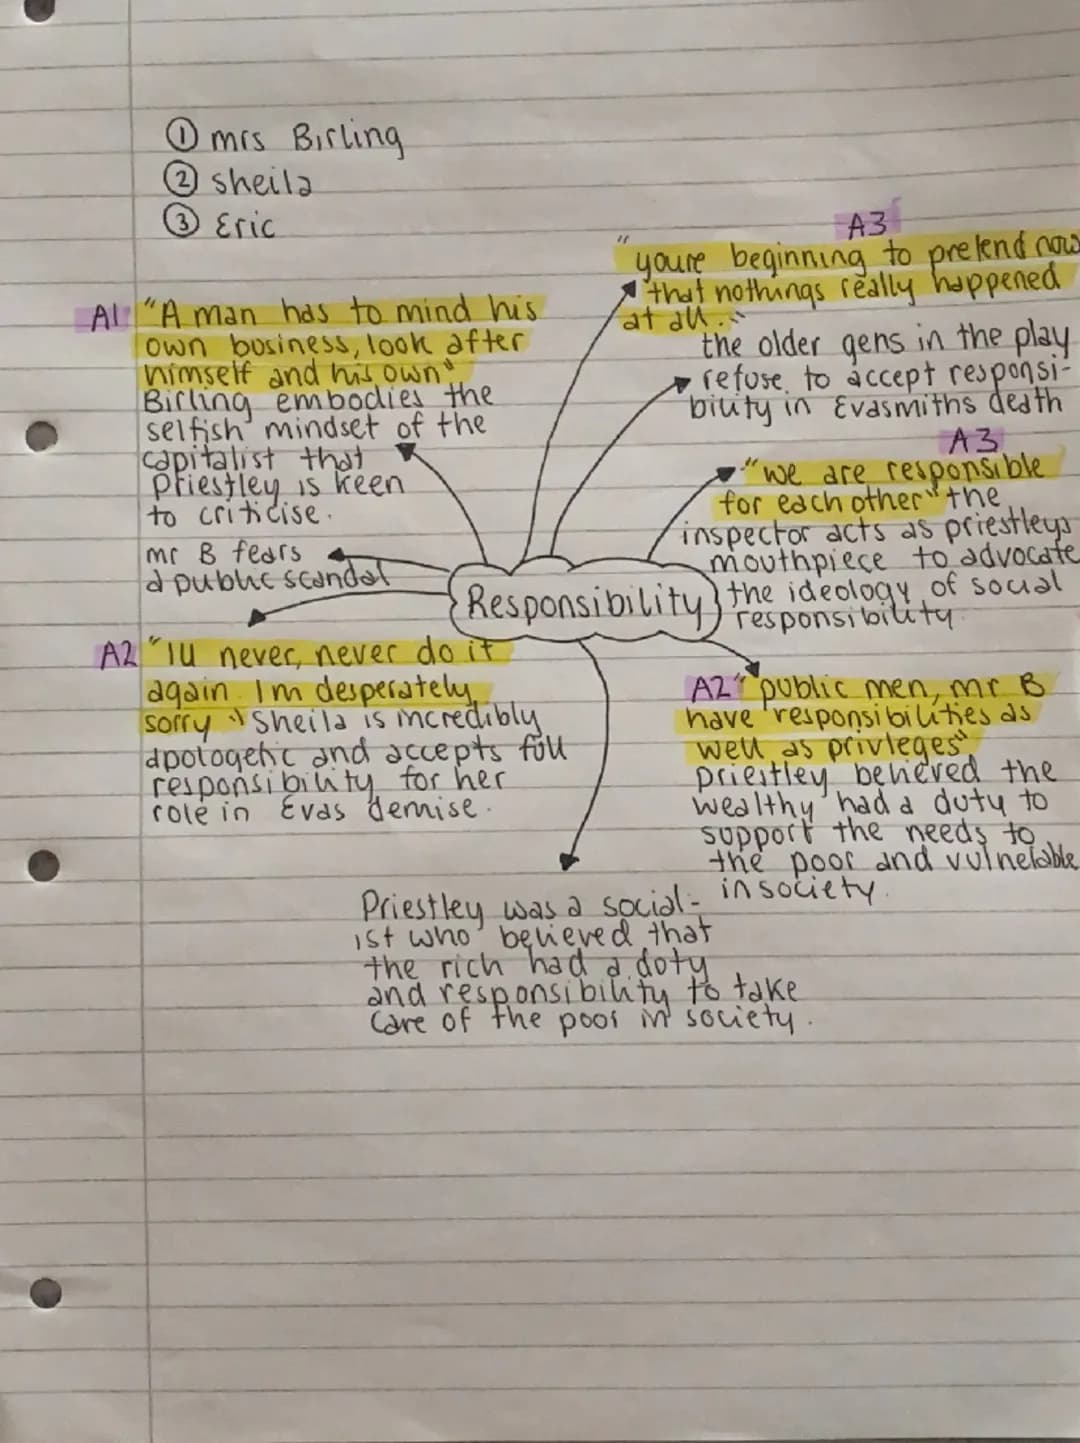 ① mrs Birling
② sheila
③ Eric
A3
"youre beginning to pretend now
that nothings really happened
at all."
the older gens in the play
refuse to accept responsi-
bility in Evasmiths death
A1 "A man has to mind his
own business, look after
himself and his own"
Birling embodies the
selfish mindset of the
capitalist that
priestley is keen
to criticise.
mr B fears
a public scandal
A3
"we are responsible
for each other" the
inspector acts as priestleys
mouthpiece to advocate
the ideology of social
responsibility
Responsibility
A2 "Ill never, never do it
again. Im desperately
sorry" Sheila is incredibly
apologetic and accepts full
responsibility for her
role in Evas demise.
A2 "public men, mr B
have responsibilities as
well as privleges"
priestley believed the
wealthy had a duty to
support the needs to
the poor and vulnerable
in society.
Priestley was a social-
ist who believed that
the rich had a duty
and responsibility to take
care of the poor in society.